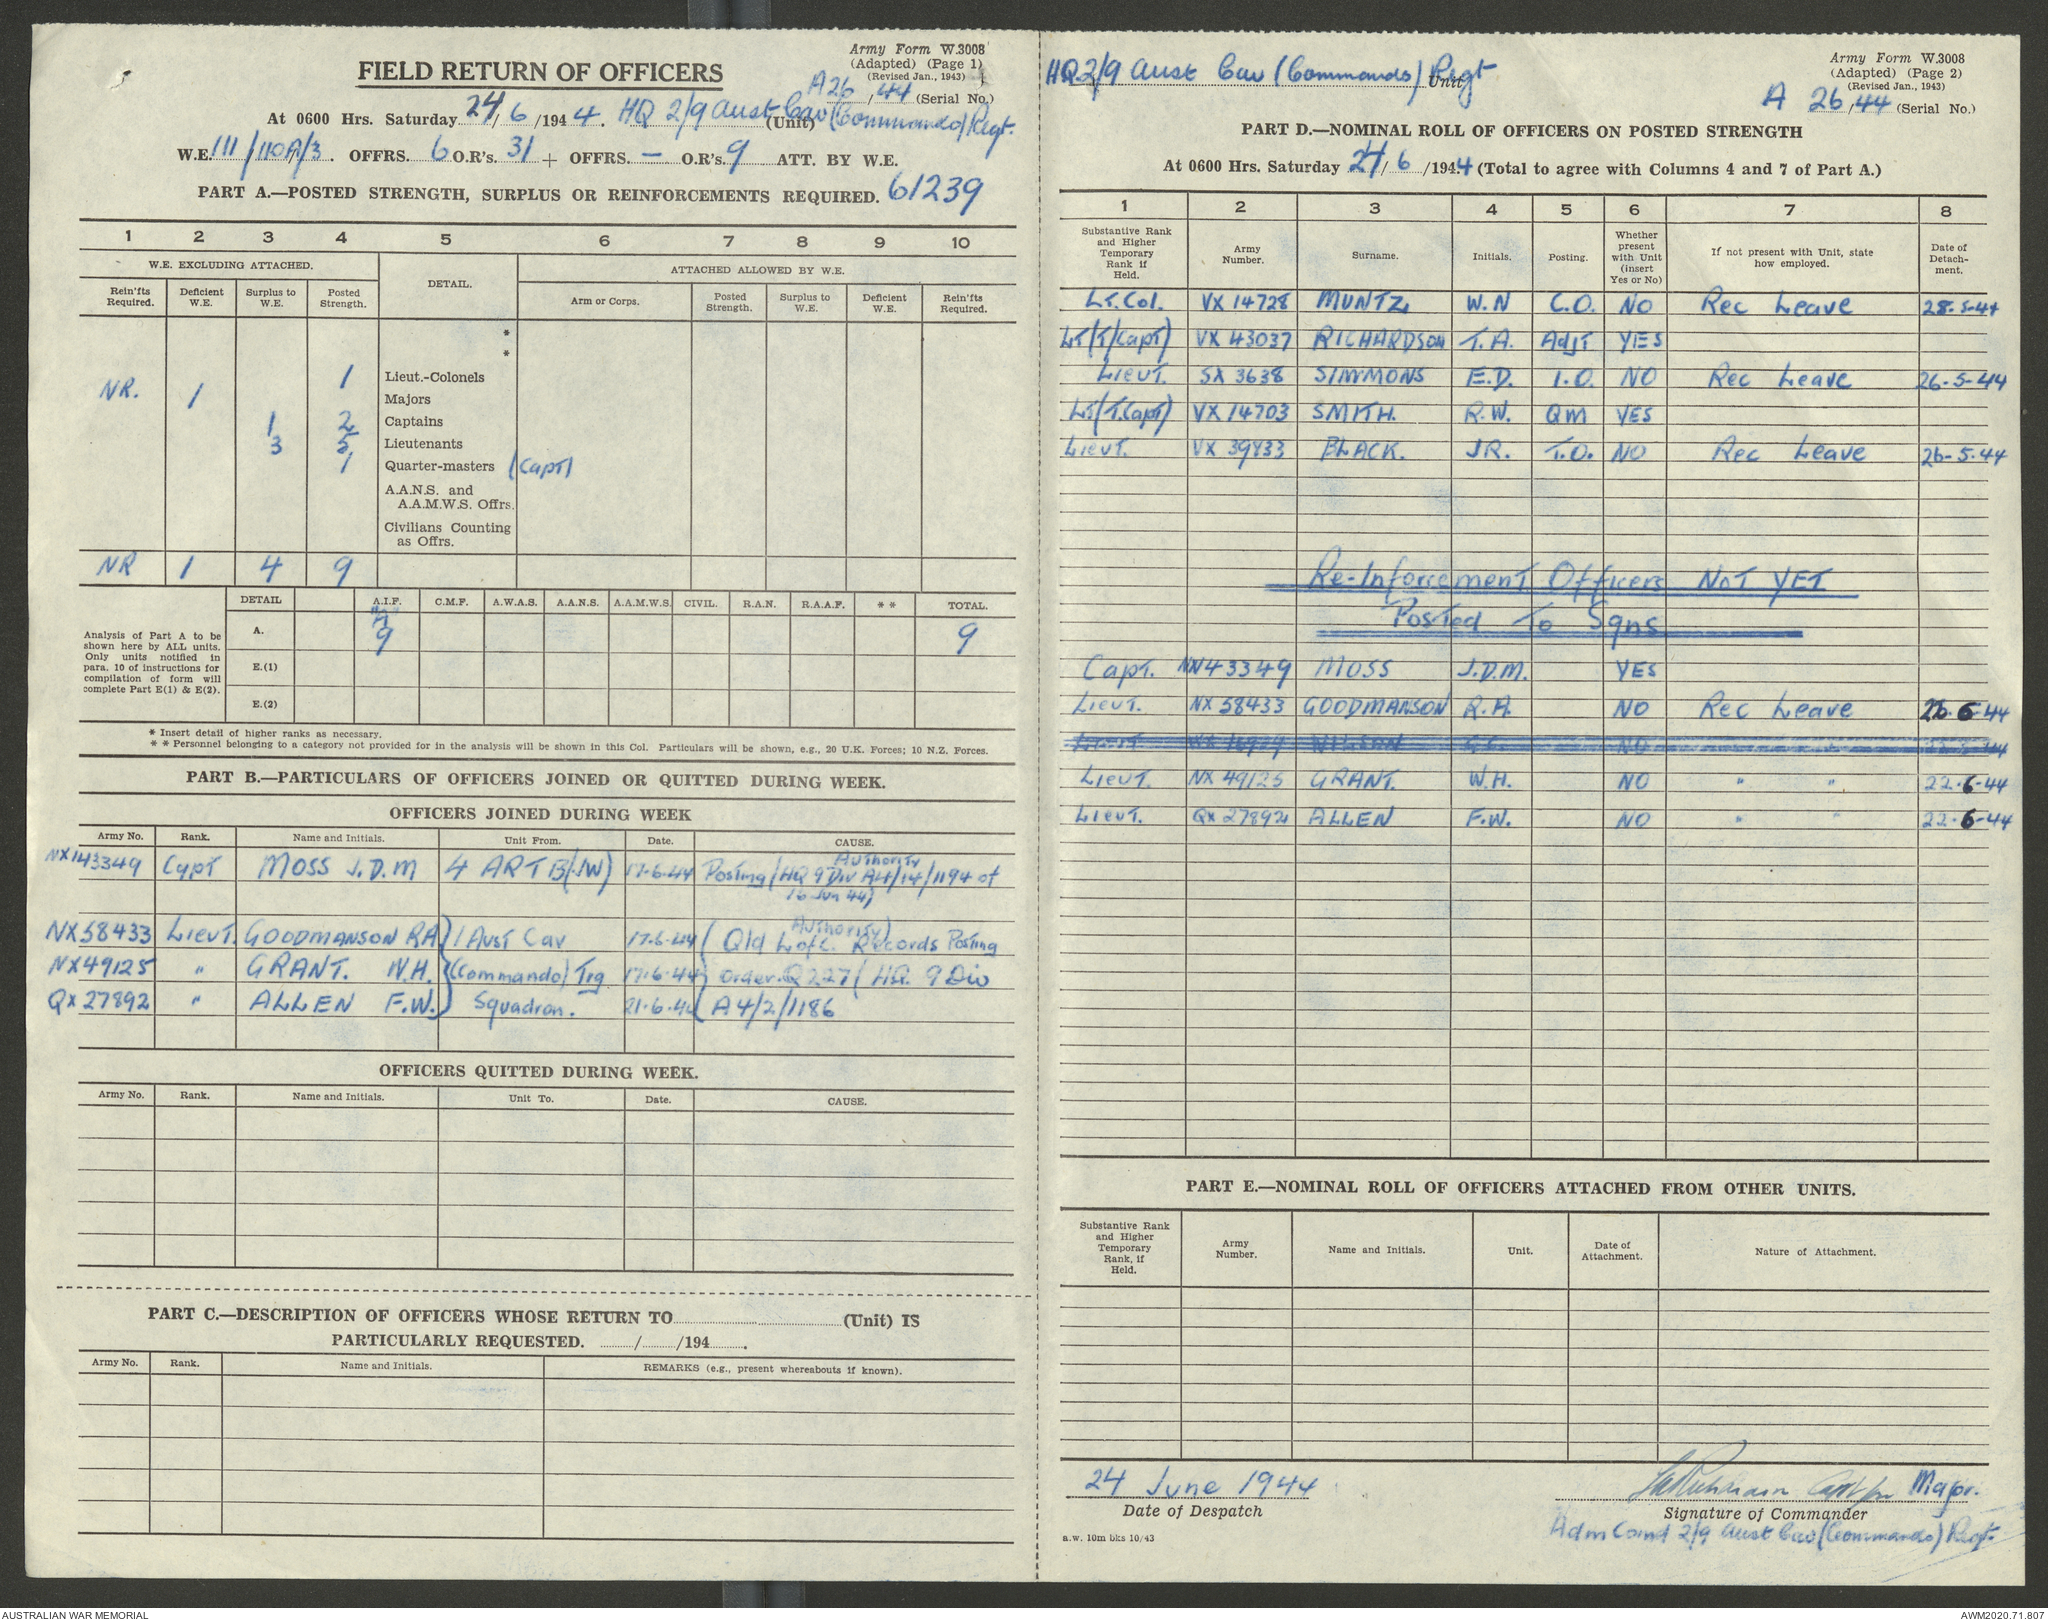 Army Form W.3008
(Adapted) (Page 1)
(Revised Jan., 1943)
FIELD RETURN OF OFFICERS
A26/44 (Serial No.)
At 0600 Hrs. Saturday 24/6/1944. HQ 2/9 Aust Cav (Commando) Regt. (Unit)
W.E. 111/110A/3. OFFRS. 6 O.R's. 31 + OFFRS. — O.R's. 9 ATT. BY W.E.
PART A.—POSTED STRENGTH, SURPLUS OR REINFORCEMENTS REQUIRED. 61239
1 2 3 4 5 6 7 8 9 10
W.E. EXCLUDING ATTACHED. DETAIL. ATTACHED ALLOWED BY W.E.
Rein'fts Required. Deficient W.E. Surplus to W.E. Posted Strength. Arm or Corps. Posted Strength. Surplus to W.E. Deficient W.E. Rein'fts Required.
*
*
1 Lieut.-Colonels
NR. 1 Majors
1 2 Captains
3 5 Lieutenants
1 Quarter-masters (Capt)
A.A.N.S. and
A.A.M.W.S. Offrs.
Civilians Counting
as Offrs.
NR 1 4 9
DETAIL A.I.F. C.M.F. A.W.A.S. A.A.N.S. A.A.M.W.S. CIVIL. R.A.N. R.A.A.F. * * TOTAL.
Analysis of Part A to be
shown here by ALL units.
Only units notified in
para. 10 of instructions for
compilation of form will
complete Part E(1) & E(2).
A. 9 9
E.(1)
E.(2)
* Insert detail of higher ranks as necessary.
* * Personnel belonging to a category not provided for in the analysis will be shown in this Col. Particulars will be shown, e.g., 20 U.K. Forces; 10 N.Z. Forces.
PART B.—PARTICULARS OF OFFICERS JOINED OR QUITTED DURING WEEK.
OFFICERS JOINED DURING WEEK
Army No. Rank. Name and Initials. Unit From. Date. CAUSE.
NX143349 Capt MOSS J.D.M 4 ARTB(JW) 17-6-44 Posting (Authority HQ 9 Div A4/14/1194 of
16 Jun 44)
NX58433 Lieut. GOODMANSON RA 1 Aust Cav 17-6-44 (Authority) Qld L of C. Records Posting
NX49125 " GRANT. W.H. (Commando) Trg 17-6-44 Order. Q227 (HQ. 9 Div
QX27892 " ALLEN F.W. Squadron. 21-6-44 A4/2/1186
OFFICERS QUITTED DURING WEEK.
Army No. Rank. Name and Initials. Unit To. Date. CAUSE.
PART C.—DESCRIPTION OF OFFICERS WHOSE RETURN TO (Unit) IS
PARTICULARLY REQUESTED. / /194 .
Army No. Rank. Name and Initials. REMARKS (e.g., present whereabouts if known).
HQ 2/9 Aust Cav (Commando) Regt Unit
Army Form W.3008
(Adapted) (Page 2)
(Revised Jan., 1943)
A 26/44 (Serial No.)
PART D.—NOMINAL ROLL OF OFFICERS ON POSTED STRENGTH
At 0600 Hrs. Saturday 24/6/1944 (Total to agree with Columns 4 and 7 of Part A.)
1 2 3 4 5 6 7 8
Substantive Rank and Higher Temporary Rank if Held. Army Number. Surname. Initials. Posting. Whether present with Unit (insert Yes or No) If not present with Unit, state how employed. Date of Detachment.
Lt.Col. VX 14728 MUNTZ W.N C.O. NO Rec Leave 28-5-44
Lt(T/Capt) VX 43037 RICHARDSON T.A. Adjt YES
Lieut. SX 3638 SIMMONS E.D. I.O. NO Rec Leave 26-5-44
Lt(T.Capt) VX 14703 SMITH. R.W. QM YES
Lieut. VX 39433 BLACK. J.R. T.O. NO Rec Leave 26-5-44
Re-Inforcement Officers NOT YET
Posted To Sqns
Capt. NX143349 MOSS J.D.M. YES
Lieut. NX 58433 GOODMANSON R.A. NO Rec Leave 22-6-44
Lieut. NX 49125 GRANT. W.H. NO " " 22-6-44
Lieut. QX 27892 ALLEN F.W. NO " " 22-6-44
PART E.—NOMINAL ROLL OF OFFICERS ATTACHED FROM OTHER UNITS.
Substantive Rank and Higher Temporary Rank, if Held. Army Number. Name and Initials. Unit. Date of Attachment. Nature of Attachment.
24 June 1944
Date of Despatch
TARichardson Capt for Major.
Signature of Commander
Adm Comd 2/9 Aust Cav (Commando) Regt.
a.w. 10m bks 10/43
AUSTRALIAN WAR MEMORIAL
AWM2020.71.807